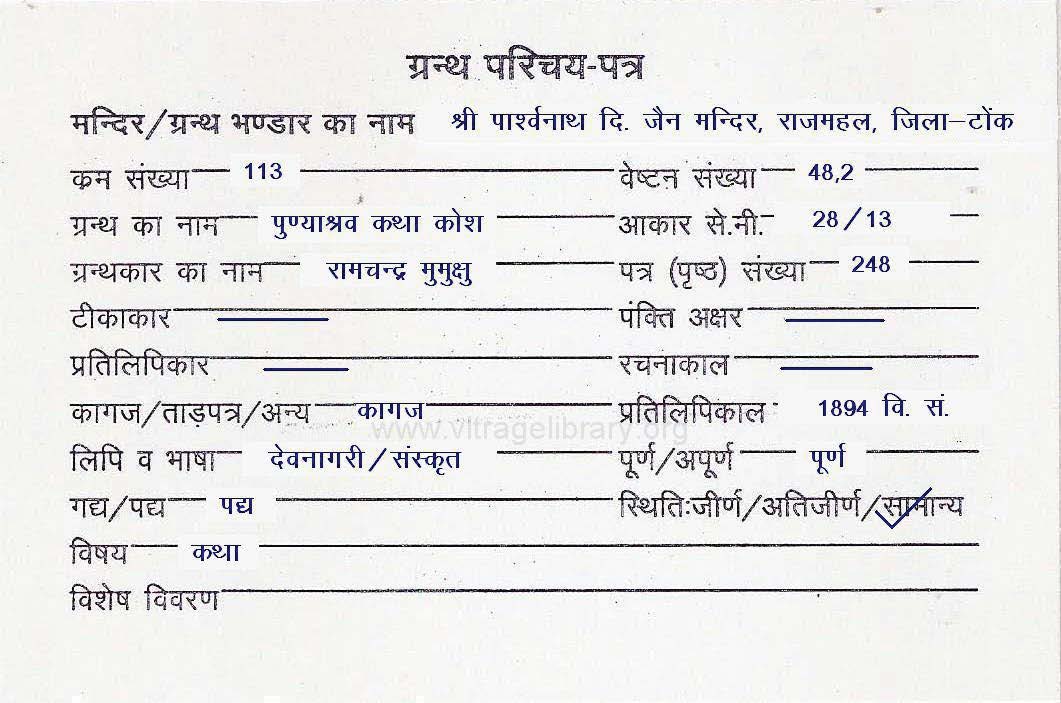 ग्रन्थ परिचय-पत्र
मन्दिर/ग्रन्थ भण्डार का नाम श्री पार्श्वनाथ दि. जैन मन्दिर, राजमहल, जिला-टोंक
कम संख्या 113 वेष्टन संख्या 48,2
ग्रन्थ का नाम पुण्याश्रव कथा कोश आकार से.मी. 28/13
ग्रन्थकार का नाम रामचन्द्र मुमुक्षु पत्र (पृष्ठ) संख्या 248
टीकाकार पंक्ति अक्षर
प्रतिलिपिकार रचनाकाल
कागज/ताड़पत्र/अन्य कागज प्रतिलिपिकाल 1894 वि. सं.
www.vitragelibrary.org
लिपि व भाषा देवनागरी/संस्कृत पूर्ण/अपूर्ण पूर्ण
गद्य/पद्य पद्य स्थितिःजीर्ण/अतिजीर्ण/सामान्य
विषय कथा
विशेष विवरण